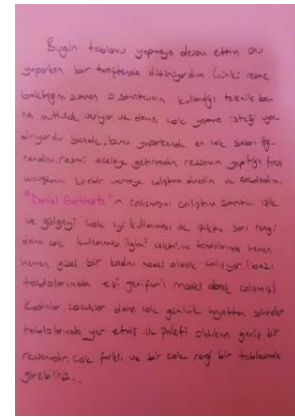 Bugün tablomu yapmaya devam ettim onu
yaparken bir taraftanda düşünüyordum. Çünkü resme
baktığım zaman o sanatcının kullandığı teknik ba-
na mutluluk veriyor ve daha çok yapma isteği
bunu yaparkende en çok sabırı öğ-
rendim resmi aceleye getirmeden ressamın yaptığı fırça
vermeye çalıştım
"Daniel Gerhartz" ın çalışmasını çalıştım sanatcı ışık
ve gölgeyi çok iyi kullanması ve ışıkta sarı rengi
daha çok kullanması ilgimi çekti ve tablolarında hemen
hemen güzel bir kadını model alarak çalışıyor (bazı
tablolarındada eşi jenifer'i model alarak çalışmış)
Kadınlar, çocuklar daha çok günlük hayattan sahneler
tablolarında yer etmiş ve paleti oldukça geniş bir
ressamdır. Çok farklı ve bir çok rengi bir tablosunda
görebiliriz..